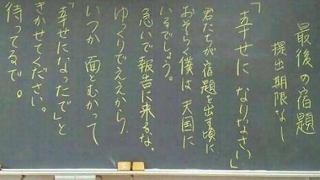 最後の宿題
提出期限なし
「幸せになりなさい」
君たちが宿題を出す頃に
おそらく僕は天国に
いるでしょう。
急いで報告に来るな。
ゆっくりでええから、
いつか面とむかって
「幸せになったで」と
きかせてください。
待ってるで。